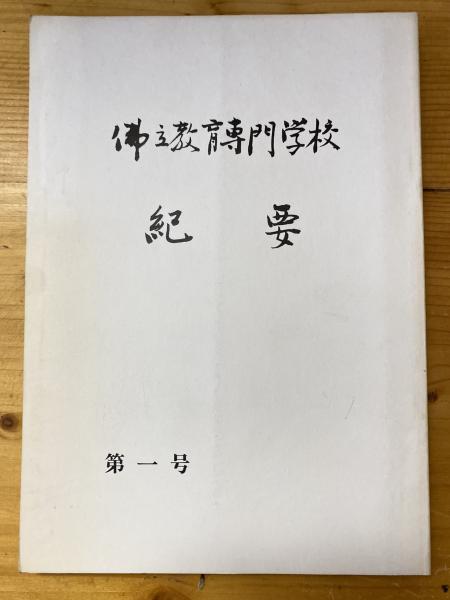 佛立教育専門学校
紀要
第一号